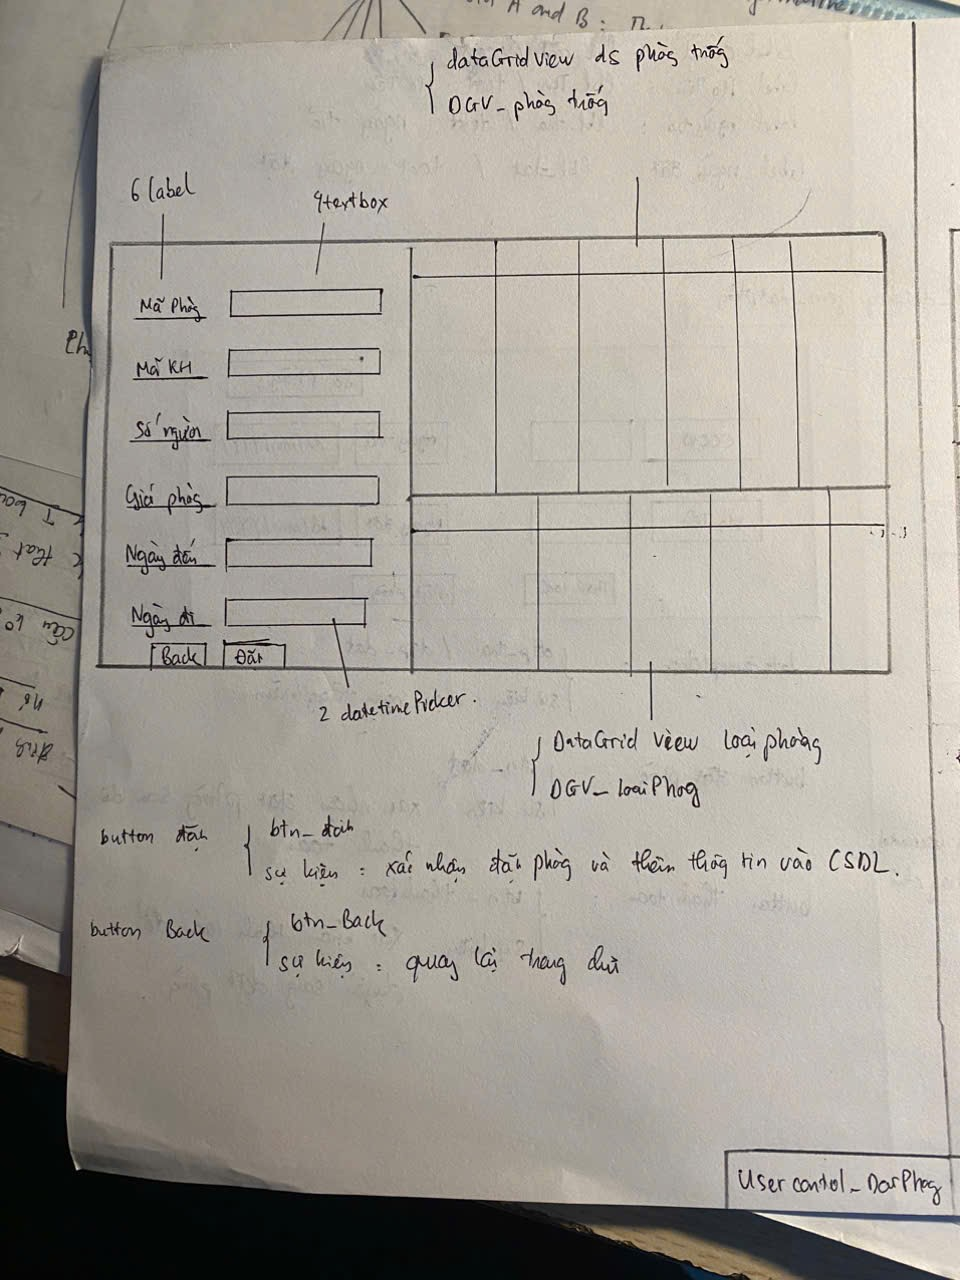 A and B :
dataGridview ds phòng trống
DGV_phòng trống
6 label
4textbox
Mã Phòng
Mã KH
Số người
Giá phòng
Ngày đến
Ngày đi
Back
Đặt
2 datetimePicker.
DataGrid View loại phòng
DGV_LoaiPhog
button đặt
btn_đặt
sự kiện : xác nhận đặt phòng và thêm thông tin vào CSDL.
button Back
btn_Back
sự kiện : quay lại trang chủ
User contol_DatPhog